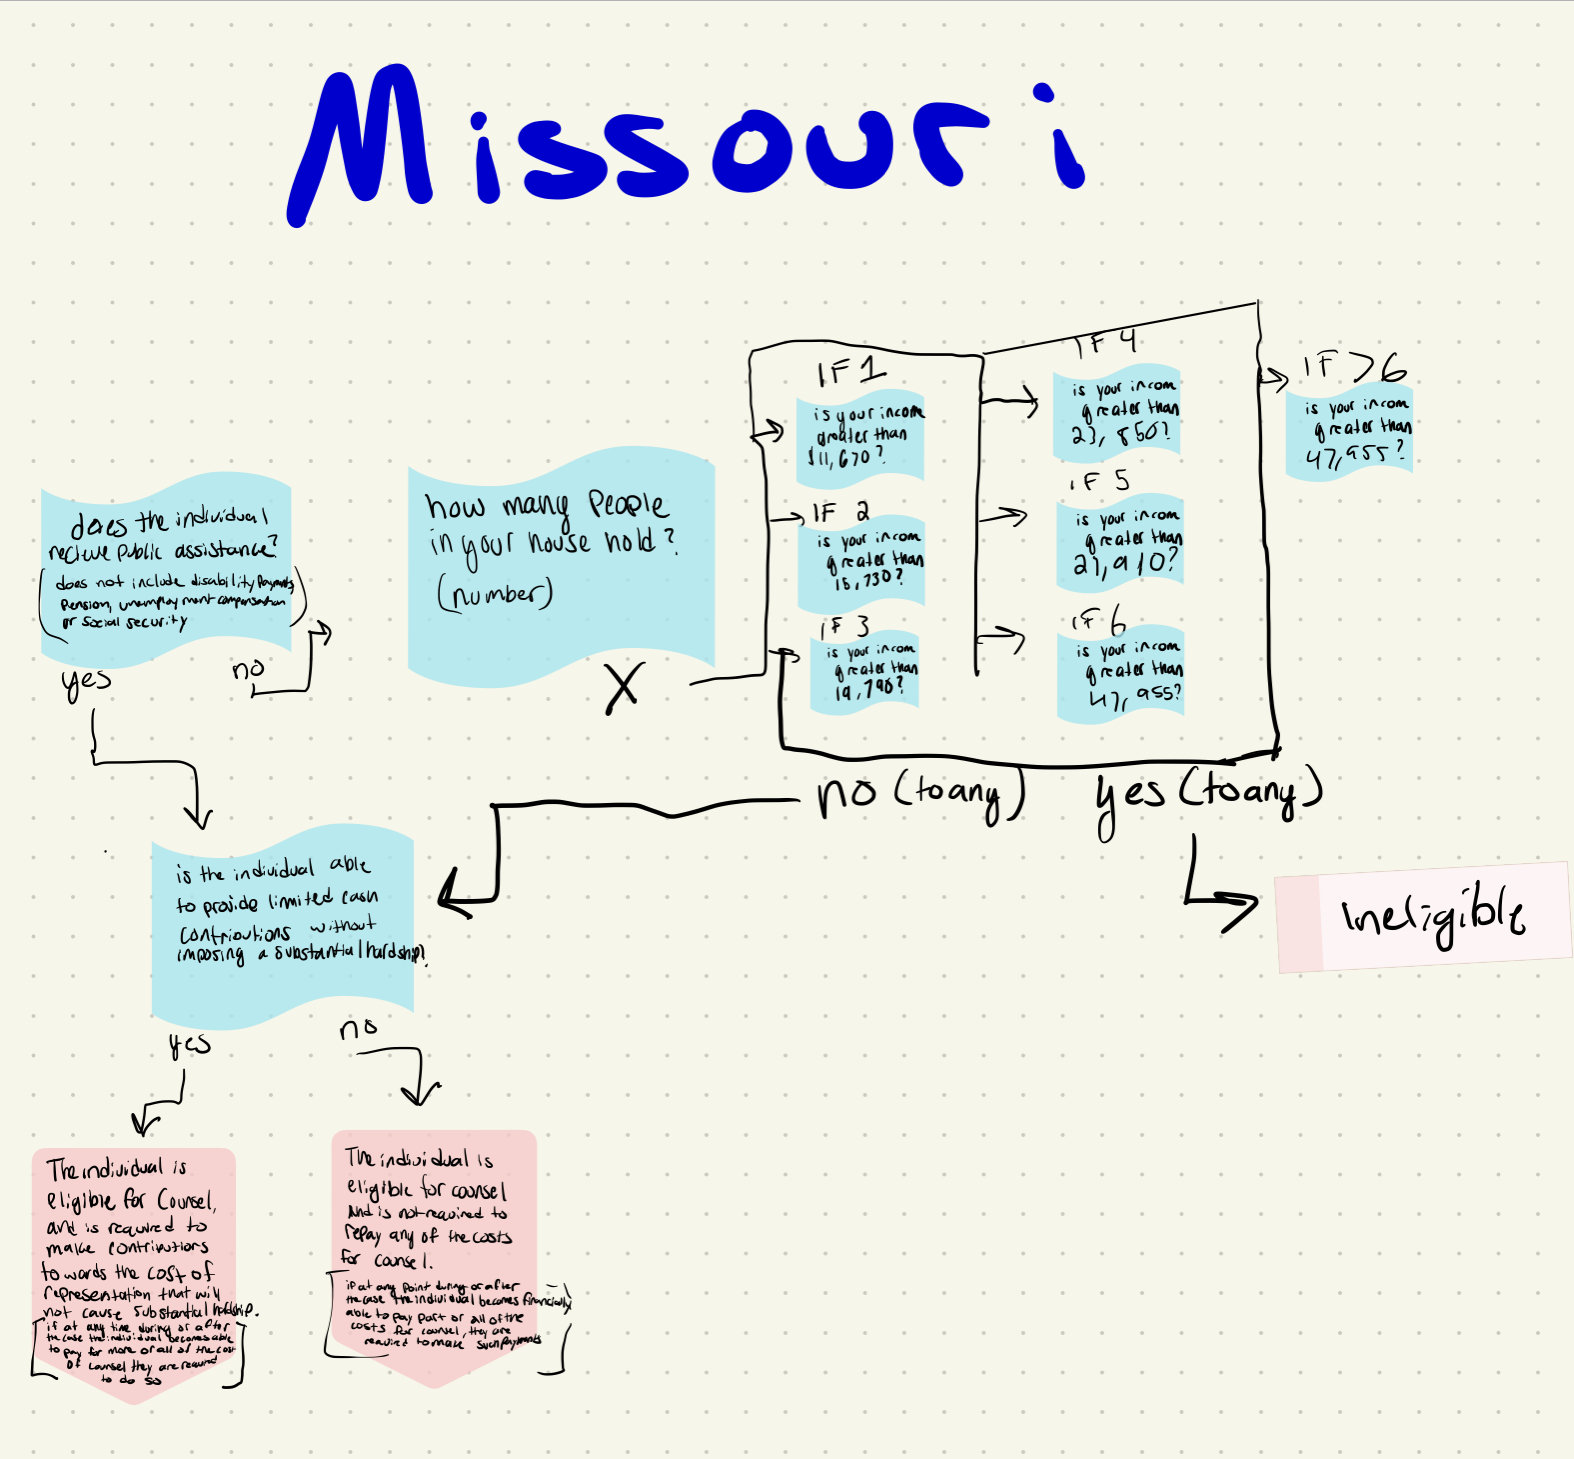 Missouri
does the individual
recieve public assistance?
(does not include disability payments,
Pension, unemployment compensation
or social security)
yes
no
how many People
in your house hold?
(number)
X
IF 1
is your incom
greater than
$11,670?
IF 2
is your incom
greater than
15,730?
IF 3
is your incom
greater than
19,790?
IF 4
is your incom
greater than
23,850?
IF 5
is your incom
greater than
27,910?
IF 6
is your incom
greater than
47,955?
IF >6
is your incom
greater than
47,955?
no (to any)
yes (to any)
ineligible
is the individual able
to provide limited cash
contributions without
imposing a substantial hardship?
yes
no
The individual is
eligible for Counsel,
and is required to
make contributions
towards the cost of
representation that will
not cause substantial hardship.
[if at any time during or after
the case the individual becomes able
to pay for more or all of the cost
of counsel they are required
to do so]
The individual is
eligible for counsel
And is not required to
repay any of the costs
for counsel.
[if at any point during or after
the case the individual becomes financially
able to pay part or all of the
costs for counsel, they are
required to make such payments]